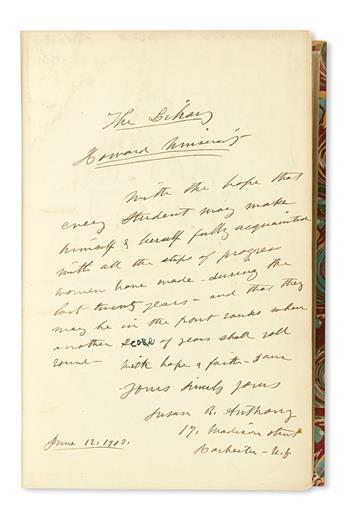 The Library
Howard University
With the hope that
every Student may make
himself & herself fully acquainted
with all the steps of progress
women have made - during the
last twenty years - and that they
may be in the front ranks when
another score of years shall roll
round - with hope & faith - I am
Yours Sincerely yours
Susan B. Anthony
17, Madison street
Rochester - N.Y.
June 12, 1903.